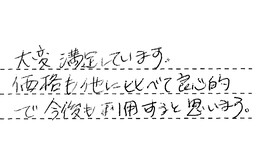 大変満足しています。
価格も他に比べて良心的
で今後も利用すると思います。